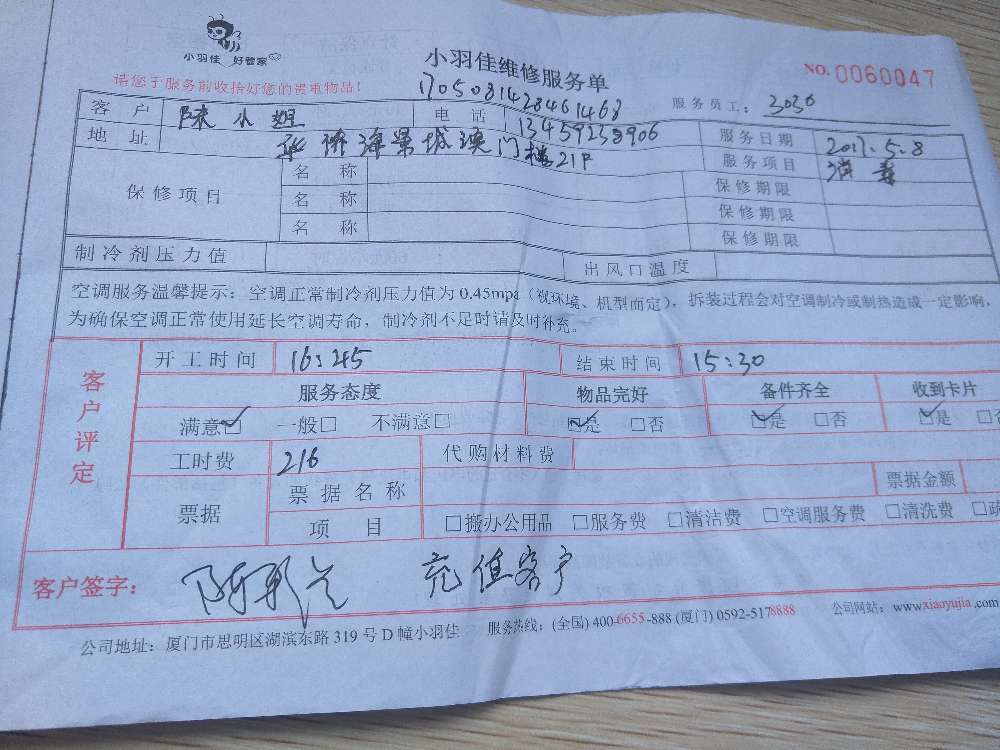 小羽佳 好管家
小羽佳维修服务单
NO.0060047
请您于服务前收拾好您的贵重物品!
1705081428461468
服务员工: 3036
客户 陈小姐 电话 13459238906 服务日期 2017.5.8
地址 华侨海景城澳门楼21F 服务项目
保修项目 名称 保修期限
名称 保修期限
名称 保修期限
制冷剂压力值 出风口温度
空调服务温馨提示:空调正常制冷剂压力值为0.45mpa(视环境、机型而定),拆装过程会对空调制冷或制热造成一定影响,
为确保空调正常使用延长空调寿命,制冷剂不足时请及时补充。
客户评定
开工时间 16:245 结束时间 15:30
服务态度 物品完好 备件齐全 收到卡片
满意☑ 一般□ 不满意□ ☑是 □否 ☑是 □否 ☑是 □否
工时费 216 代购材料费
票据 票据名称 票据金额
项目 □搬办公用品 □服务费 □清洁费 □空调服务费 □清洗费 □疏
客户签字: 充值客户
公司地址:厦门市思明区湖滨东路319号D幢小羽佳 服务热线:(全国)400-6655-888(厦门)0592-5178888 公司网站:www.xiaoyujia.com